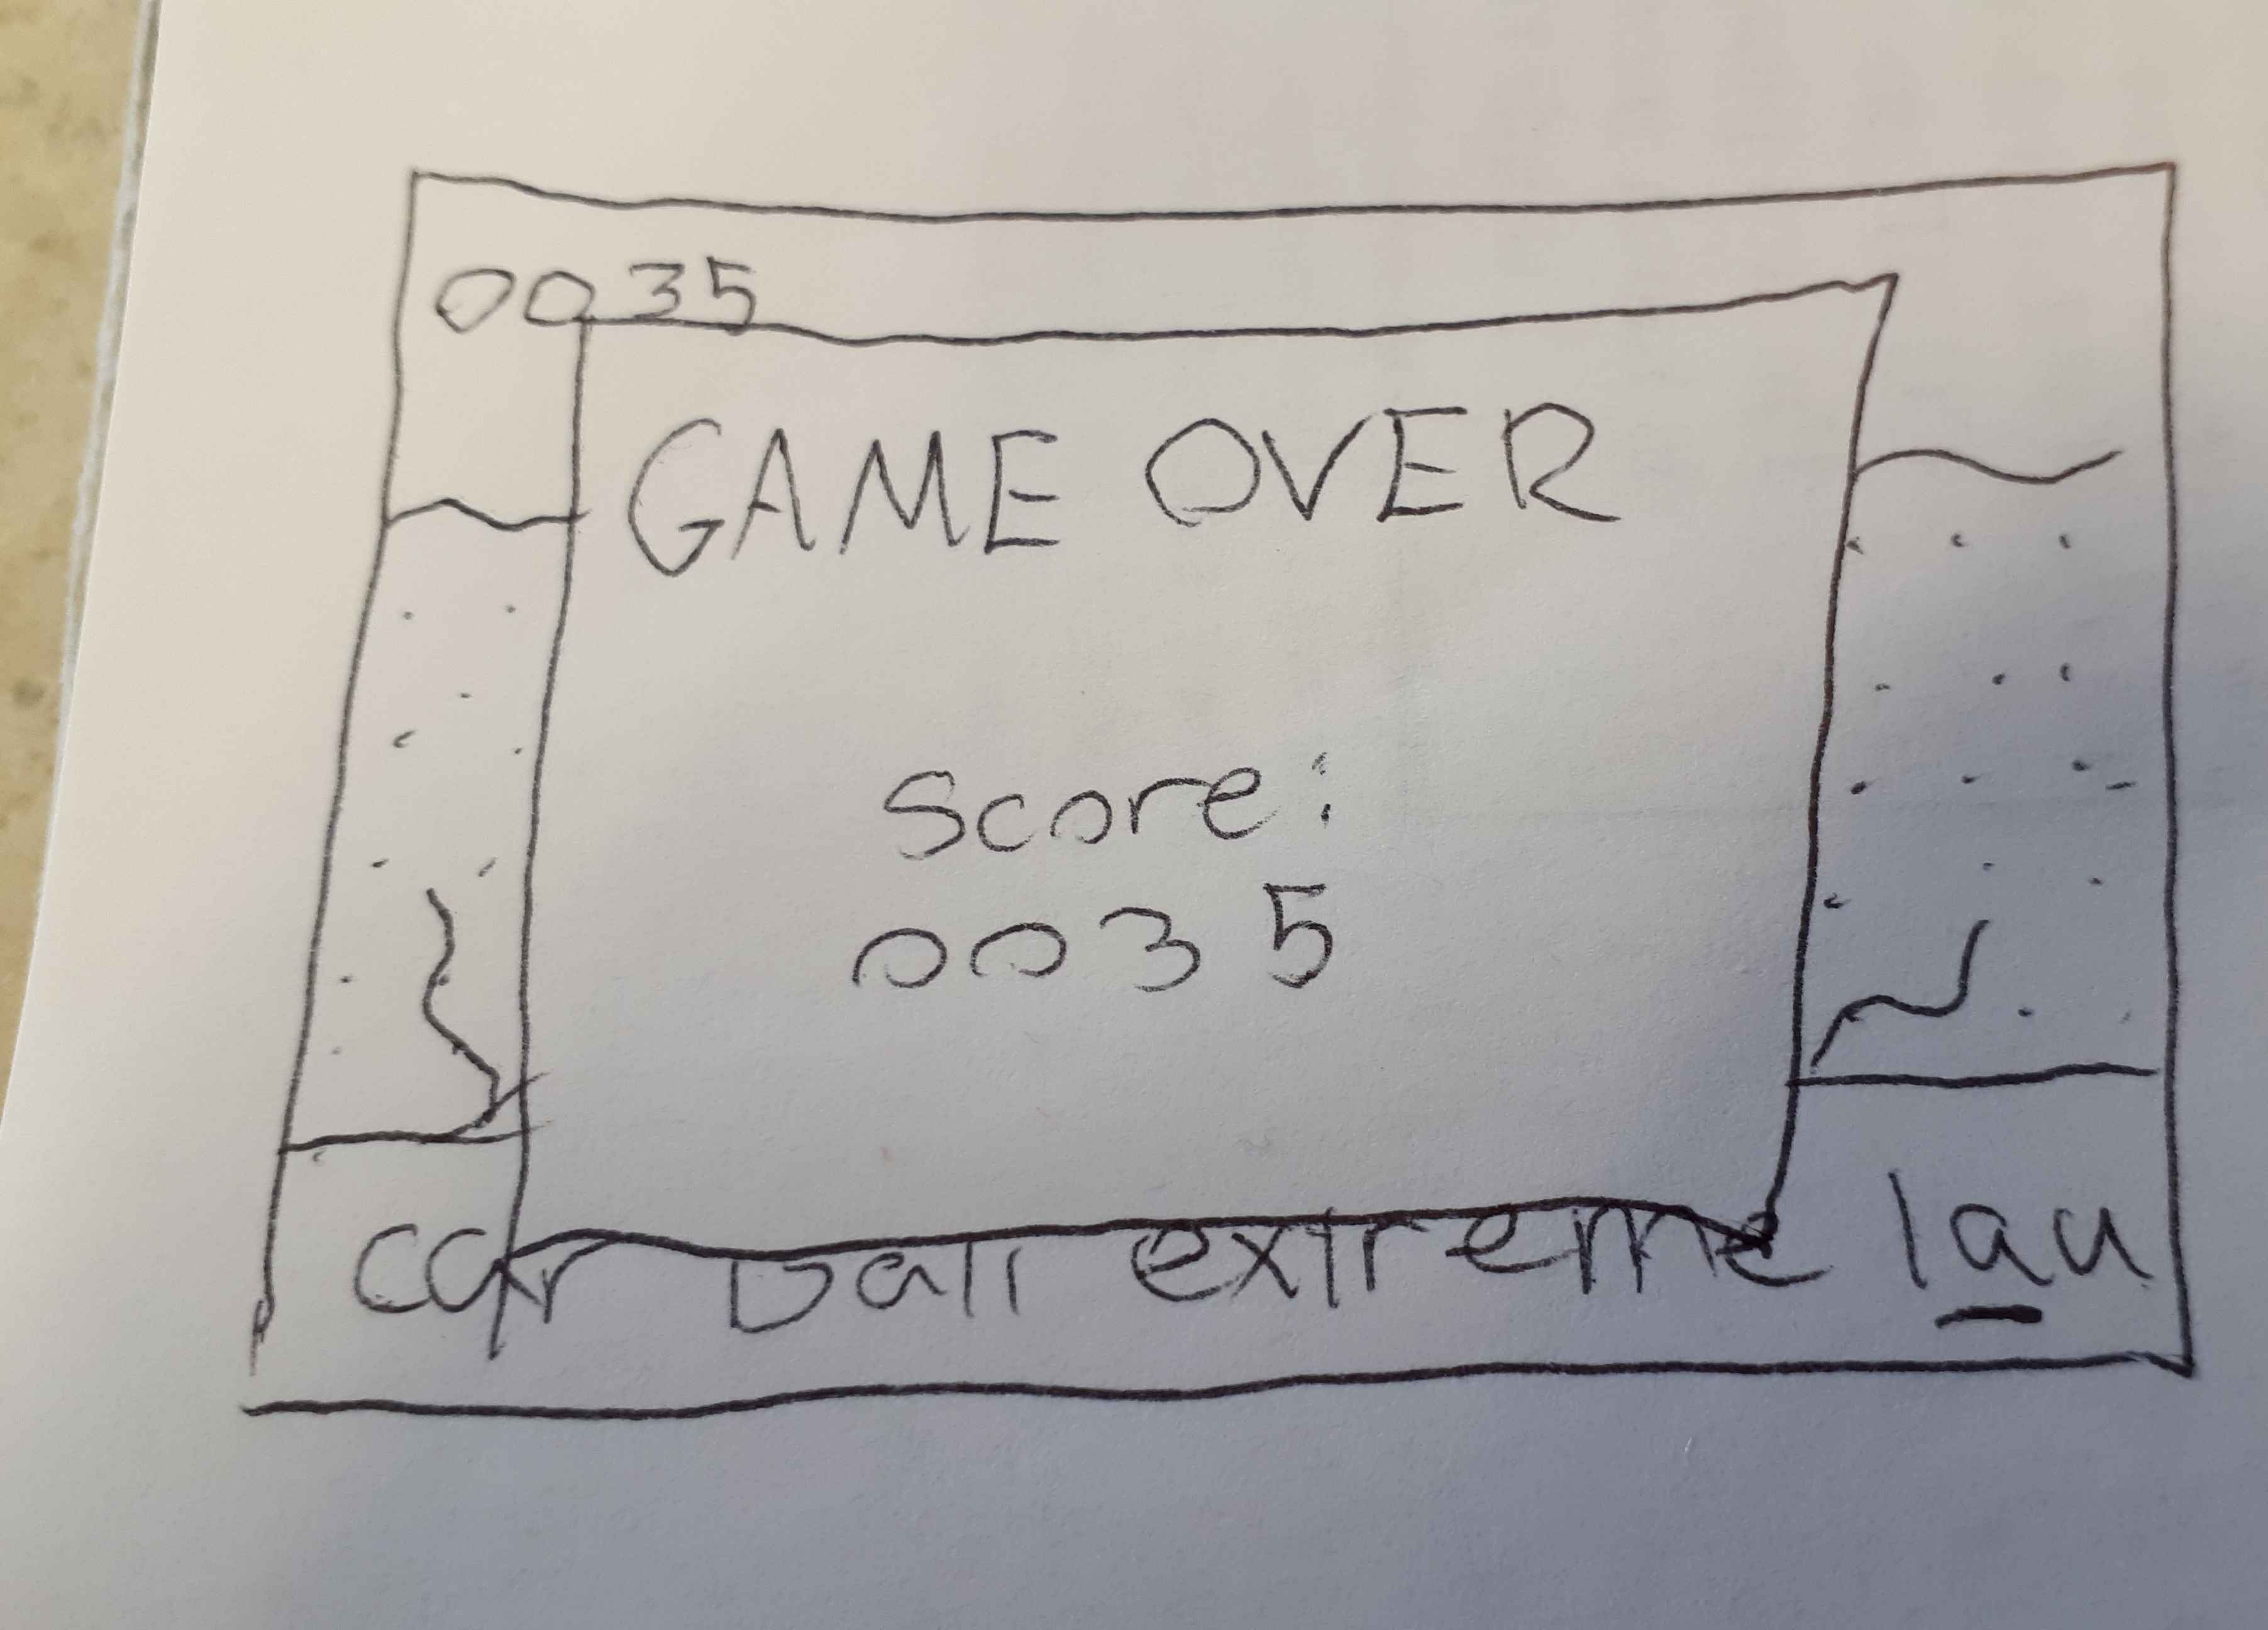 0035
GAME OVER
Score:
0035
car ball extreme lau